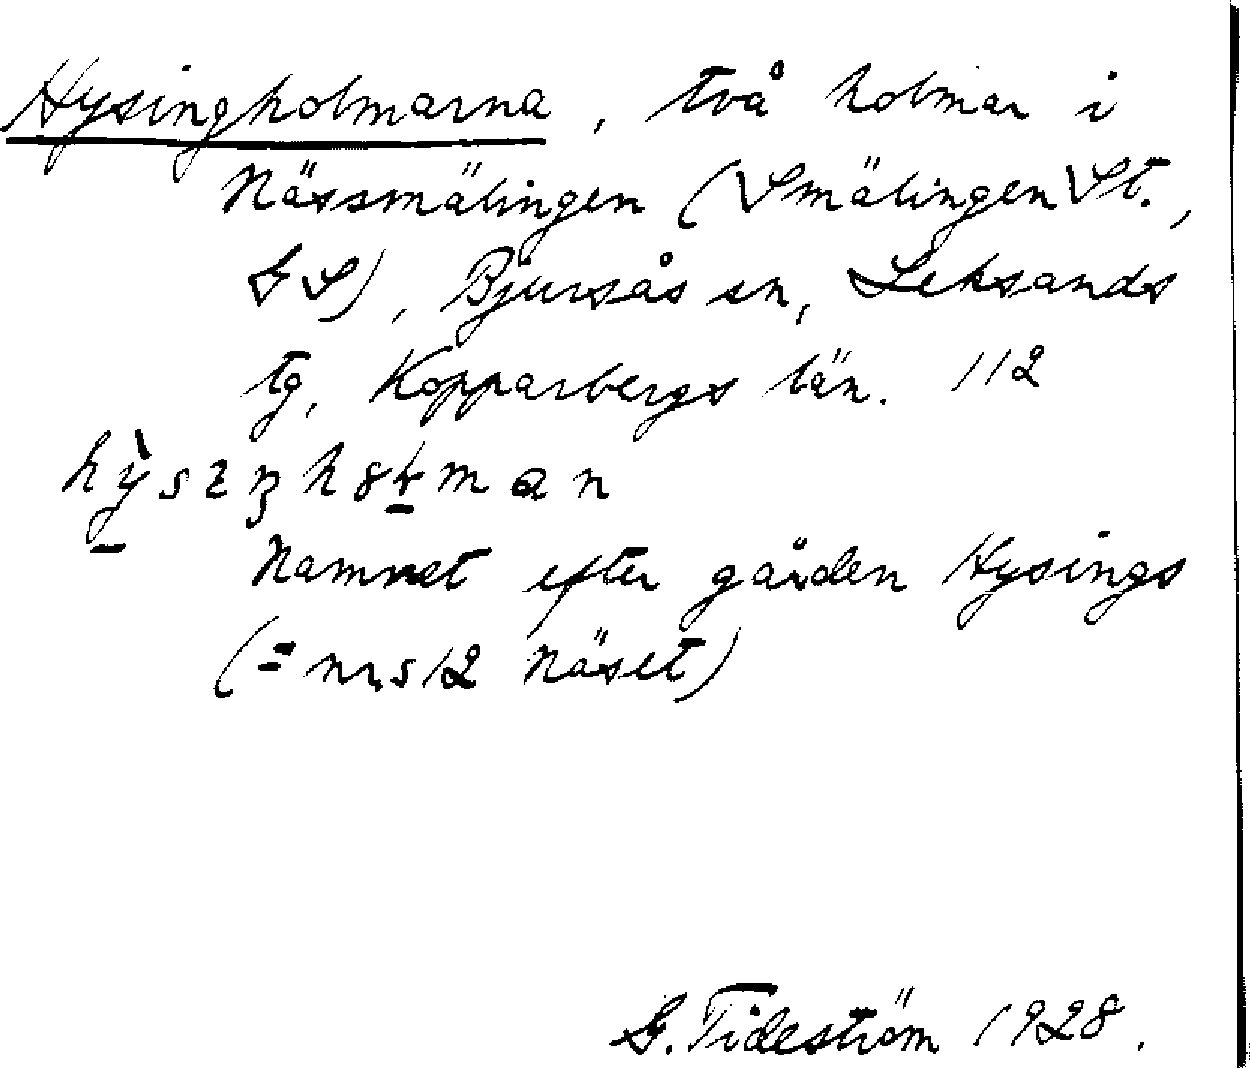 Hysingholmarna, två holmar i
Nässmälingen (Smälingen St.,
GS), Bjursås sn, Leksands
tg, Kopparbergs län. 112
Namnet efter gården Hysings
(= nr 512 Näset)
G. Tideström 1928.